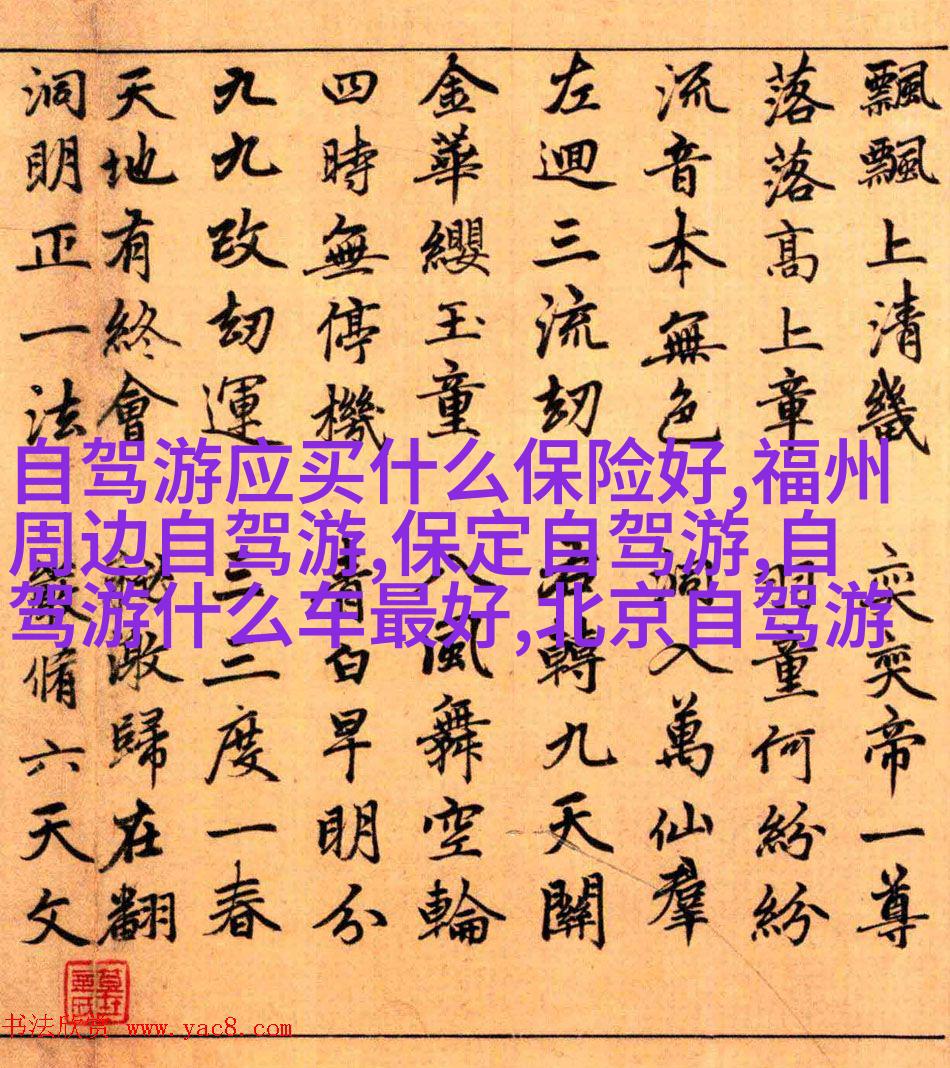 飄飄上清畿
落落高上章
流音本無色
左迴三流劫
金華纓玉童
四時無停機
九九改劫運
天地有終會
洞明正一法
奕奕帝一尊
羽童何紛紛
入萬仙羣
右轉九天關
八風舞空輪
青白早明分
三三度一春
歸在翻
嚴脩六天文
自驾游应买什么保险好,福州
周边自驾游,保定自驾游,自
驾游什么车最好,北京自驾游
书法欣赏 www.yac8.com